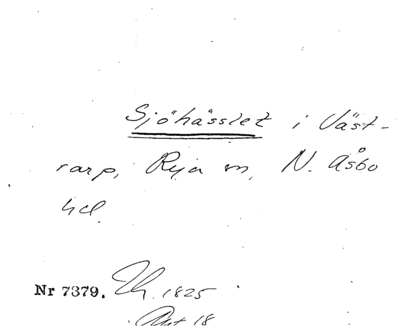 Sjöhässlet i Väst-
rarp, Rya sn, N. Åsbo
hd.
Nr 7379. 1825
Akt 18